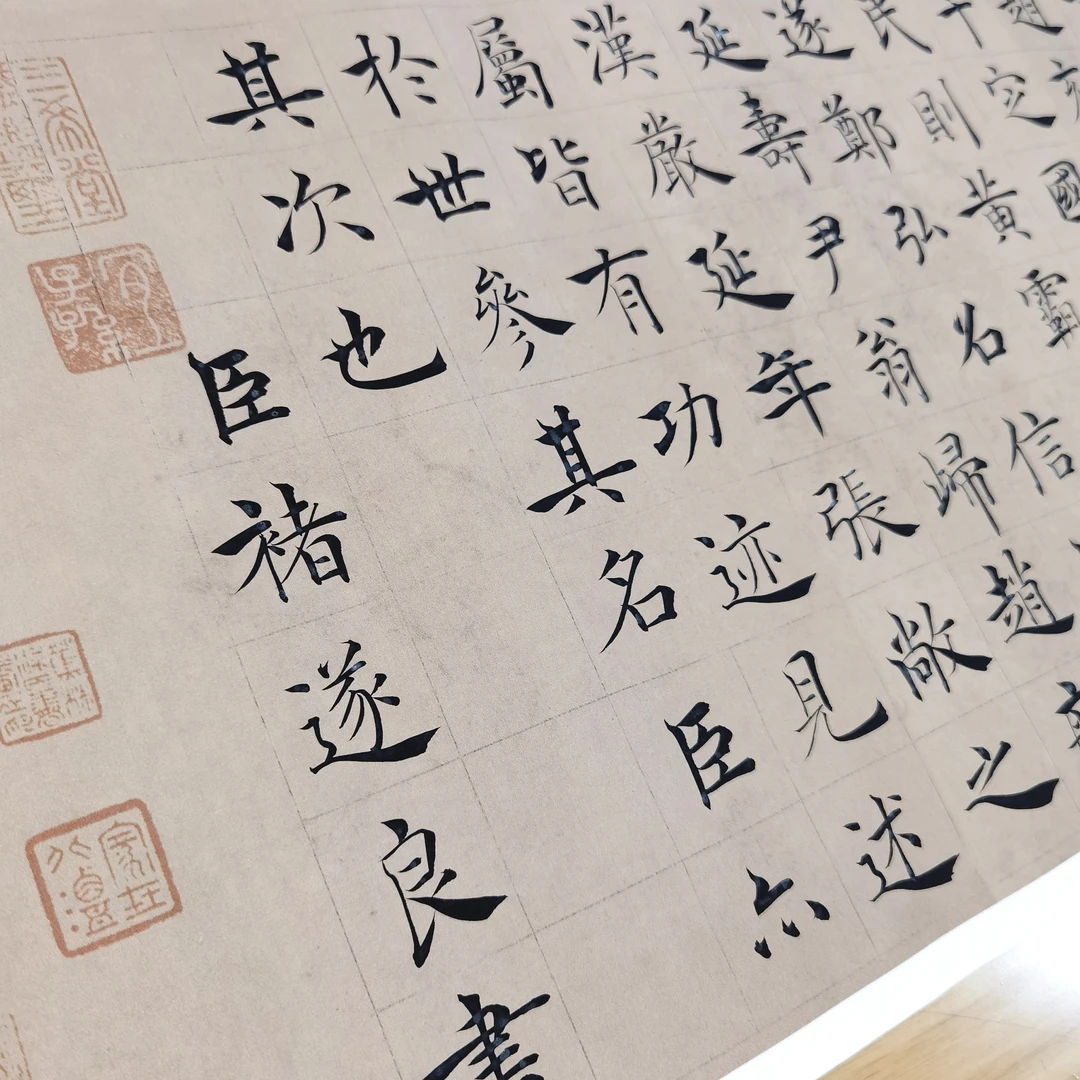 趙
于定國
民則黃霸
遂鄭弘名信
延壽尹翁歸趙
漢嚴延年張敞之
屬皆有功迹見述
於世參其名臣亦
其次也
臣褚遂良書
三希堂
宜子孫